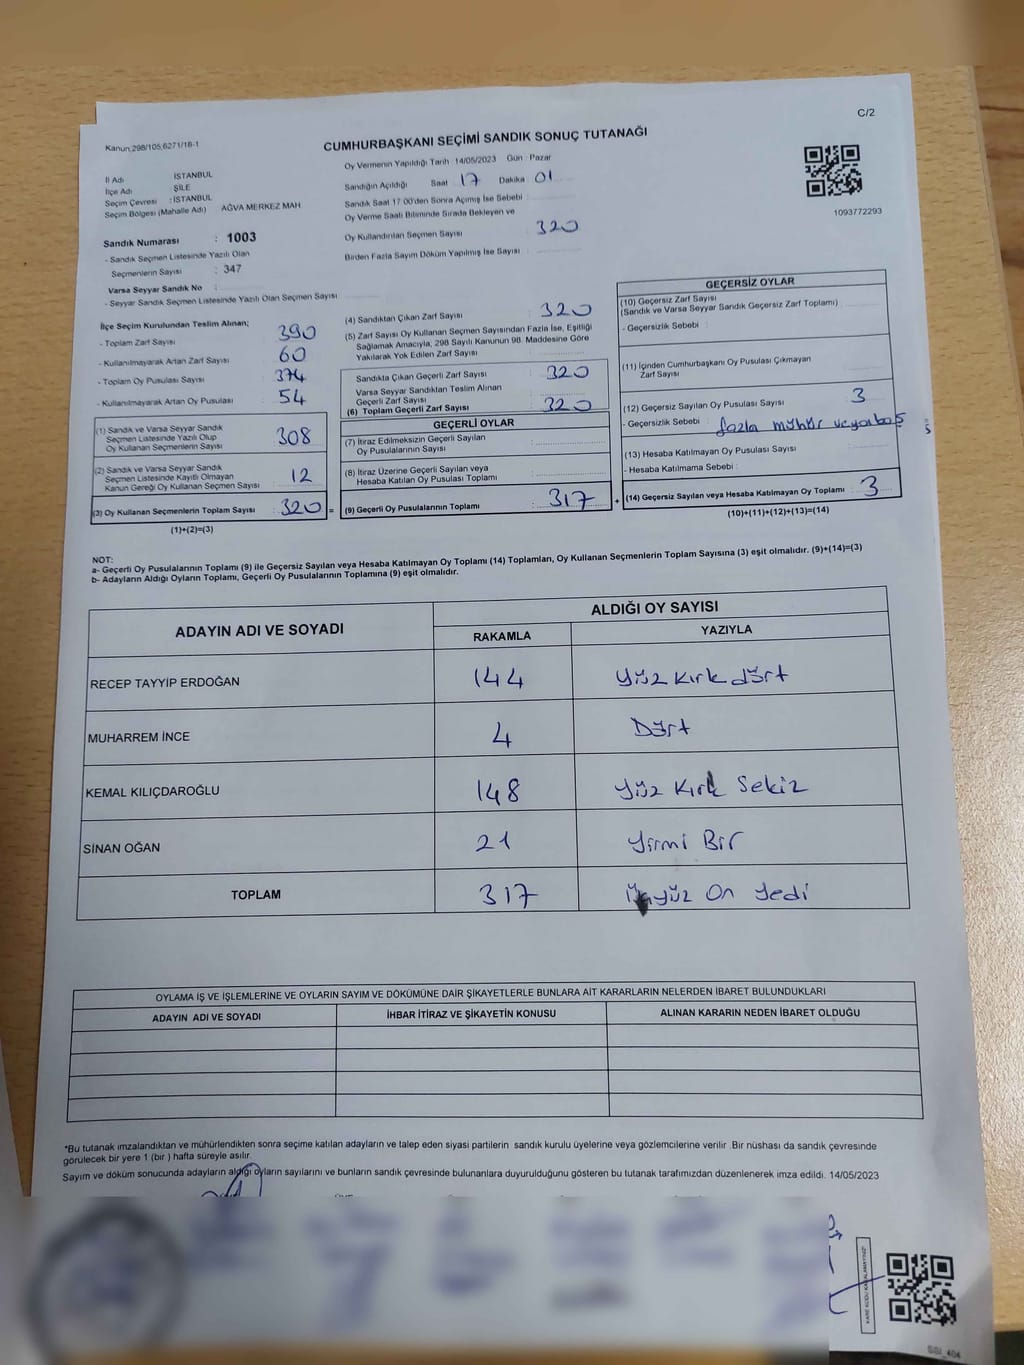 C/2
Kanun;298/105,6271/18-1
CUMHURBAŞKANI SEÇİMİ SANDIK SONUÇ TUTANAĞI
İl Adı İSTANBUL
İlçe Adı ŞİLE
Seçim Çevresi : İSTANBUL
Seçim Bölgesi (Mahalle Adı) AĞVA MERKEZ MAH
Sandık Numarası : 1003
- Sandık Seçmen Listesinde Yazılı Olan
Seçmenlerin Sayısı : 347
Varsa Seyyar Sandık No :
- Seyyar Sandık Seçmen Listesinde Yazılı Olan Seçmen Sayısı
Oy Vermenin Yapıldığı Tarih 14/05/2023 Gün : Pazar
Sandığın Açıldığı Saat 17 Dakika 01
Sandık Saat 17:00'den Sonra Açımış İse Sebebi :
Oy Verme Saati Bitiminde Sırada Bekleyen ve
Oy Kullandırılan Seçmen Sayısı : 320
Birden Fazla Sayım Döküm Yapılmış İse Sayısı :
1093772293
İlçe Seçim Kurulundan Teslim Alınan;
- Toplam Zarf Sayısı : 390
- Kullanılmayarak Artan Zarf Sayısı : 60
- Toplam Oy Pusulası Sayısı : 374
- Kullanılmayarak Artan Oy Pusulası : 54
(1) Sandık ve Varsa Seyyar Sandık
Seçmen Listesinde Yazılı Olup
Oy Kullanan Seçmenlerin Sayısı : 308
(2) Sandık ve Varsa Seyyar Sandık
Seçmen Listesinde Kayıtlı Olmayan
Kanun Gereği Oy Kullanan Seçmen Sayısı : 12
(3) Oy Kullanan Seçmenlerin Toplam Sayısı : 320 =
(1)+(2)=(3)
(4) Sandıktan Çıkan Zarf Sayısı : 320
(5) Zarf Sayısı Oy Kullanan Seçmen Sayısından Fazla İse, Eşitliği
Sağlamak Amacıyla, 298 Sayılı Kanunun 98. Maddesine Göre
Yakılarak Yok Edilen Zarf Sayısı :
Sandıkta Çıkan Geçerli Zarf Sayısı : 320
Varsa Seyyar Sandıktan Teslim Alınan
Geçerli Zarf Sayısı :
(6) Toplam Geçerli Zarf Sayısı : 320
GEÇERLİ OYLAR
(7) İtiraz Edilmeksizin Geçerli Sayılan
Oy Pusulalarının Sayısı :
(8) İtiraz Üzerine Geçerli Sayılan veya
Hesaba Katılan Oy Pusulası Toplamı :
(9) Geçerli Oy Pusulalarının Toplamı : 317 +
GEÇERSİZ OYLAR
(10) Geçersiz Zarf Sayısı
(Sandık ve Varsa Seyyar Sandık Geçersiz Zarf Toplamı) :
- Geçersizlik Sebebi :
(11) İçinden Cumhurbaşkanı Oy Pusulası Çıkmayan
Zarf Sayısı :
(12) Geçersiz Sayılan Oy Pusulası Sayısı : 3
- Geçersizlik Sebebi : fazla mühür veya boş
(13) Hesaba Katılmayan Oy Pusulası Sayısı :
- Hesaba Katılmama Sebebi :
(14) Geçersiz Sayılan veya Hesaba Katılmayan Oy Toplamı : 3
(10)+(11)+(12)+(13)=(14)
NOT:
a- Geçerli Oy Pusulalarının Toplamı (9) ile Geçersiz Sayılan veya Hesaba Katılmayan Oy Toplamı (14) Toplamları, Oy Kullanan Seçmenlerin Toplam Sayısına (3) eşit olmalıdır. (9)+(14)=(3)
b- Adayların Aldığı Oyların Toplamı, Geçerli Oy Pusulalarının Toplamına (9) eşit olmalıdır.
ADAYIN ADI VE SOYADI ALDIĞI OY SAYISI
RAKAMLA YAZIYLA
RECEP TAYYİP ERDOĞAN 144 Yüz Kırk dört
MUHARREM İNCE 4 Dört
KEMAL KILIÇDAROĞLU 148 Yüz Kırk Sekiz
SİNAN OĞAN 21 Yirmi Bir
TOPLAM 317 Üçyüz On Yedi
OYLAMA İŞ VE İŞLEMLERİNE VE OYLARIN SAYIM VE DÖKÜMÜNE DAİR ŞİKAYETLERLE BUNLARA AİT KARARLARIN NELERDEN İBARET BULUNDUKLARI
ADAYIN ADI VE SOYADI İHBAR İTİRAZ VE ŞİKAYETİN KONUSU ALINAN KARARIN NEDEN İBARET OLDUĞU
*Bu tutanak imzalandıktan ve mühürlendikten sonra seçime katılan adayların ve talep eden siyasi partilerin sandık kurulu üyelerine veya gözlemcilerine verilir. Bir nüshası da sandık çevresinde
görülecek bir yere 1 (bir) hafta süreyle asılır.
Sayım ve döküm sonucunda adayların aldığı oyların sayılarını ve bunların sandık çevresinde bulunanlara duyurulduğunu gösteren bu tutanak tarafımızdan düzenlenerek imza edildi. 14/05/2023
KARE KODU KAPATMAYINIZ!
SSI_404